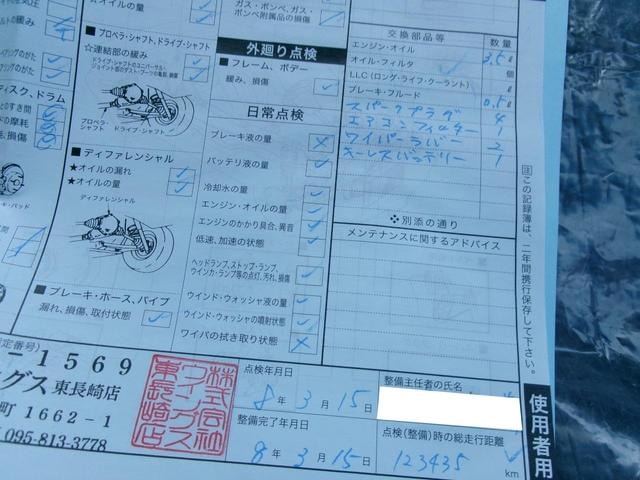 ☆オイルの量
ガス・ボンベ、ガス・
ボンベ附属品の損傷
交換部品等
数量
エンジン・オイル 3.5ℓ
オイル・フィルタ 個
LLC(ロング・ライフ・クーラント) ℓ
ブレーキ・フルード 0.5ℓ
スパークプラグ 4
エアコンフィルター 1
ワイパーラバー 2
キーレスバッテリー 1
※別添の通り
メンテナンスに関するアドバイス
■プロペラ・シャフト、ドライブ・シャフト
☆連結部の緩み
ドライブ・シャフトのユニバーサル・
ジョイント部のダスト・ブーツの亀裂、損傷
プロペラ・
シャフト
ドライブ・シャフト
■ディファレンシャル
★オイルの漏れ
★オイルの量
ディファレンシャル
■ブレーキ・ホース、パイプ
漏れ、損傷、取付状態
外廻り点検
■フレーム、ボデー
緩み、損傷
日常点検
ブレーキ液の量
バッテリ液の量
冷却水の量
エンジン・オイルの量
エンジンのかかり具合、異音
低速、加速の状態
ヘッドランプ、ストップ・ランプ、
ウインカ・ランプ等の点灯、汚れ、損傷
ウインド・ウォッシャ液の量
ウインド・ウォッシャの噴射状態
ワイパの拭き取り状態
ィスク、ドラム
とのすき間
の摩耗
損傷
キ・パッド
注この記録簿は、二年間携行保存して下さい。
使用者用
定番号)
-1569
グス 東長崎店
町1662-1
095-813-3778
株式会社
ウイングス
東長崎店
点検年月日
8年 3月 15日
整備完了年月日
8年 3月 15日
整備主任者の氏名
点検(整備)時の総走行距離
123435 km